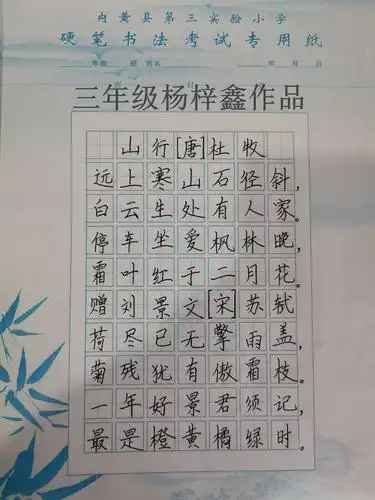 内黄县第三实验小学
硬笔书法考试专用纸
年级 班 姓名 年 月 日
三年级杨梓鑫作品
山行[唐]杜牧
远上寒山石径斜,
白云生处有人家。
停车坐爱枫林晚,
霜叶红于二月花。
赠刘景文[宋]苏轼
荷尽已无擎雨盖,
菊残犹有傲霜枝。
一年好景君须记,
最是橙黄橘绿时。